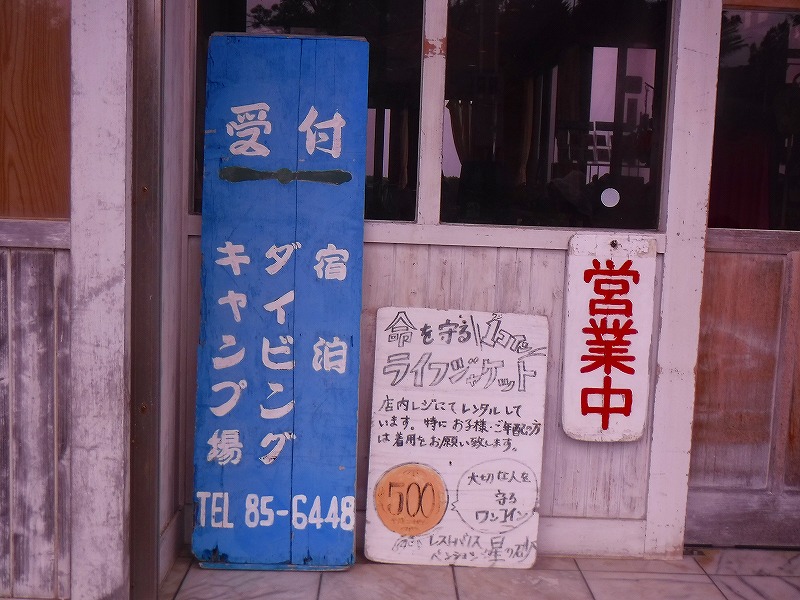 受付
宿泊
ダイビング
キャンプ場
TEL 85-6448
命を守る 1コイン
ライフジャケット
店内レジにてレンタルして
います。特にお子様・ご年配の方
は着用をお願い致します。
500
大切な人を
守る
ワンコイン
レストハウス
ペンション 星の砂
営業中